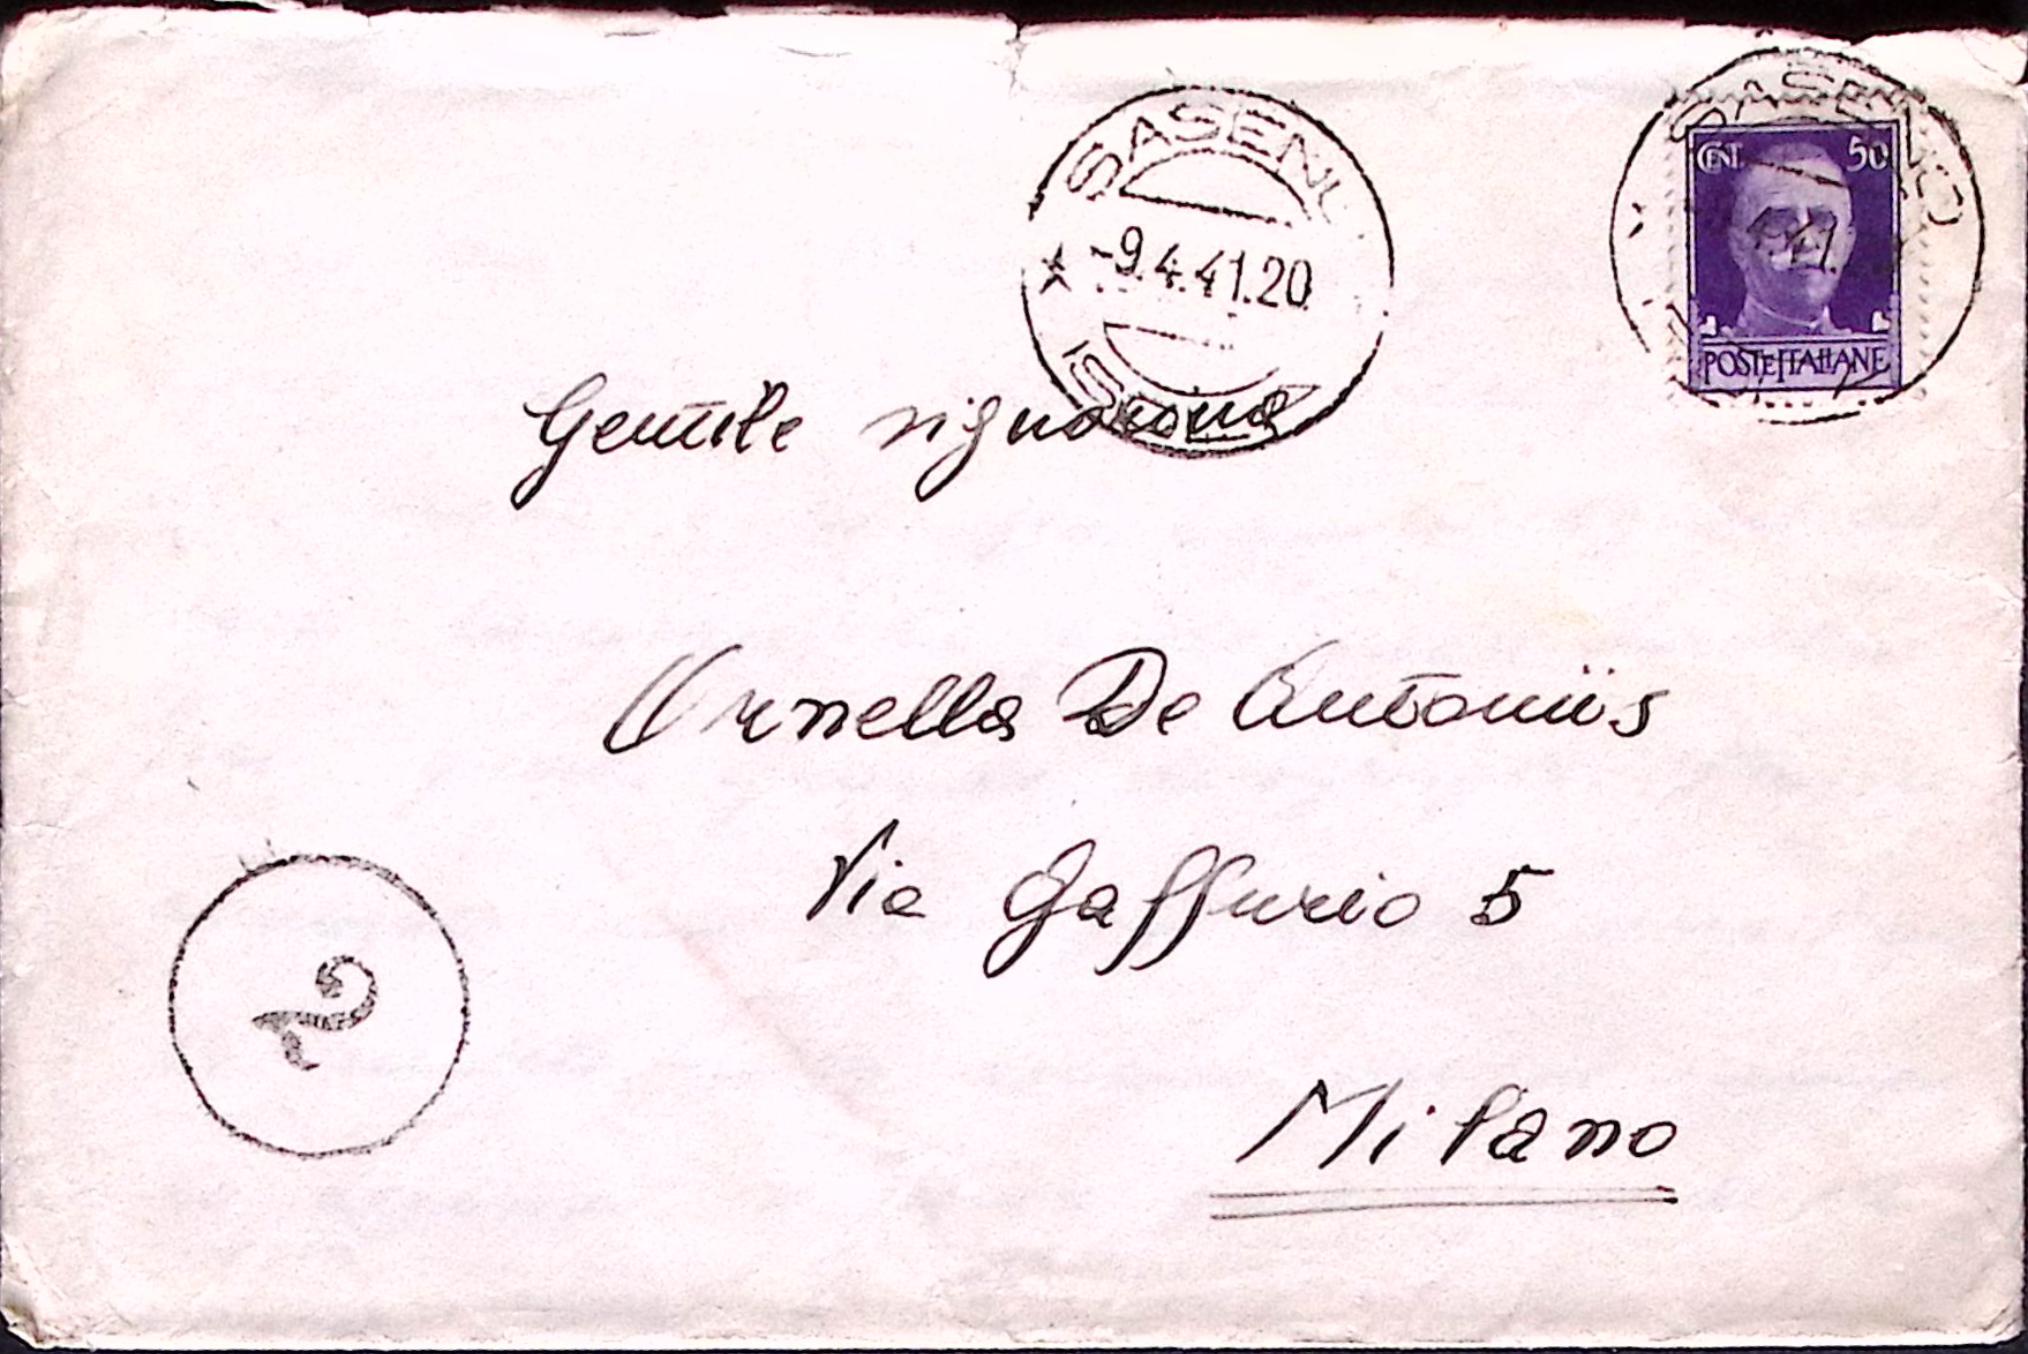 SASENO
CENT. 50
POSTE ITALIANE
SASENO
-9.4.41.20
Gentile signorina
Ornella De Antoniis
Via Gaffurio 5
Milano
2